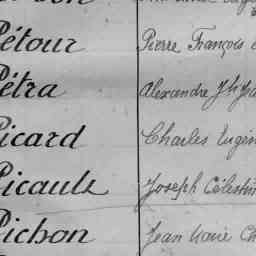 Pétour Pierre François
Pétra Alexandre
Picard Charles Eugèn
Picault Joseph Célestin
Pichon Jean Marie Ch